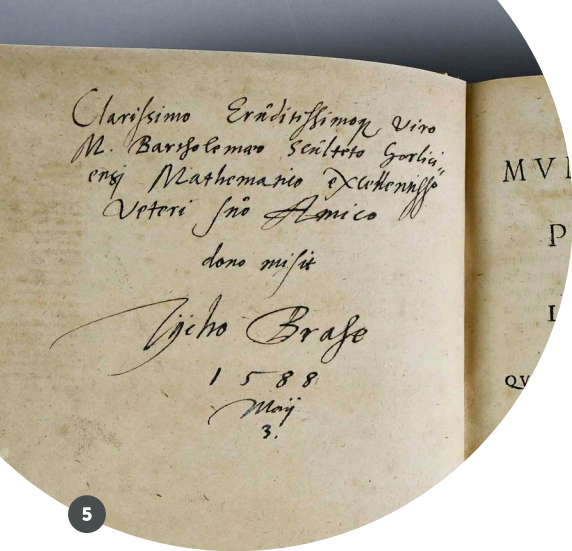 Clarissimo Eruditissimoq Viro
M. Bartholemæo Sculteto Gorlici„
ensj Mathematico eXcellentisso
Veteri suo Amico
dono misit
Tycho Brahe
1588
Maij
3.
MVN
P
QV
5